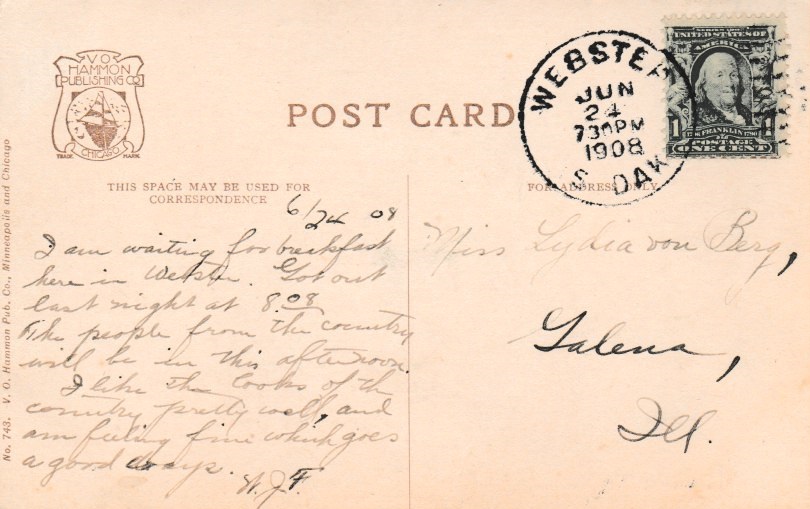 V.O.
HAMMON
PUBLISHING CO
CHICAGO
TRADE MARK
POST CARD
WEBSTER
JUN
24
7 30 PM
1908
S. DAK
SERIES 1902
UNITED STATES OF
AMERICA
1706 FRANKLIN 1790
1 1
POSTAGE
ONE CENT
THIS SPACE MAY BE USED FOR
CORRESPONDENCE
FOR ADDRESS ONLY
6/24 08
I am waiting for breakfast
here in Webster. Got out
last night at 8.08
The people from the country
will be in this afternoon.
I like the looks of the
country pretty well, and
am feeling fine which goes
a good ways.
W.J.F.
Miss Lydia von Berg,
Galena,
Ill.
No. 743. V. O. Hammon Pub. Co., Minneapolis and Chicago